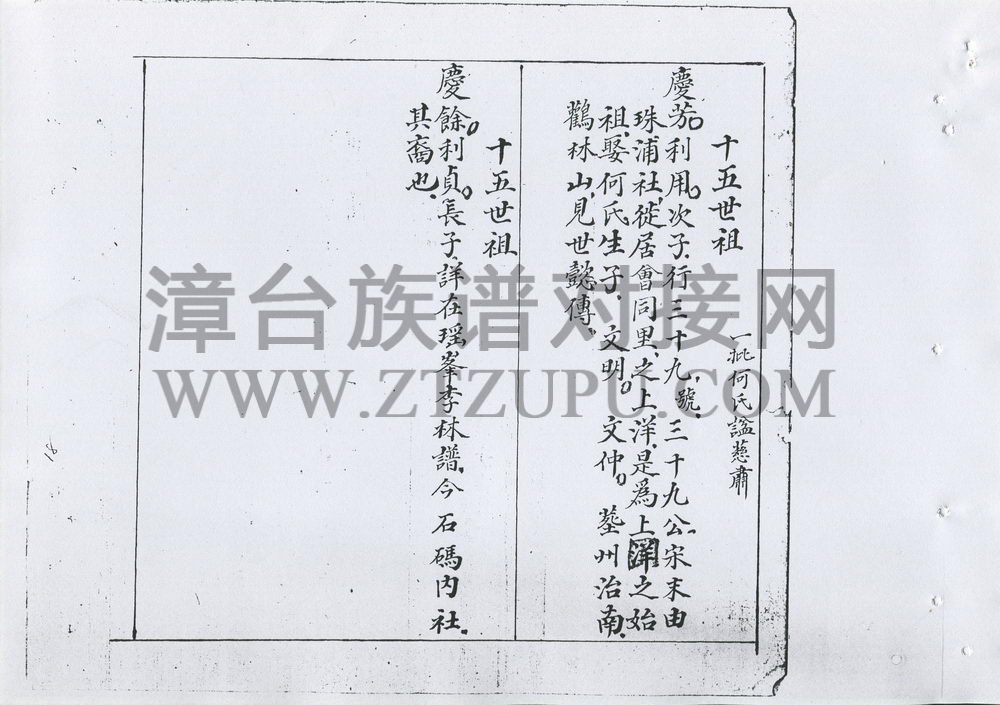 十五世祖
一妣何氏諡慈肅
慶芳利用次子行三十九號三十九公宋末由
珠浦社徙居會同里之上洋是為上洋之始
祖娶何氏生子文明文仲墓州治南
鸛林山見世懿傳
十五世祖
慶餘利貞長子詳在瑶峯李林譜今石碼內社
其裔也
18
漳台族谱对接网
WWW.ZTZUPU.COM